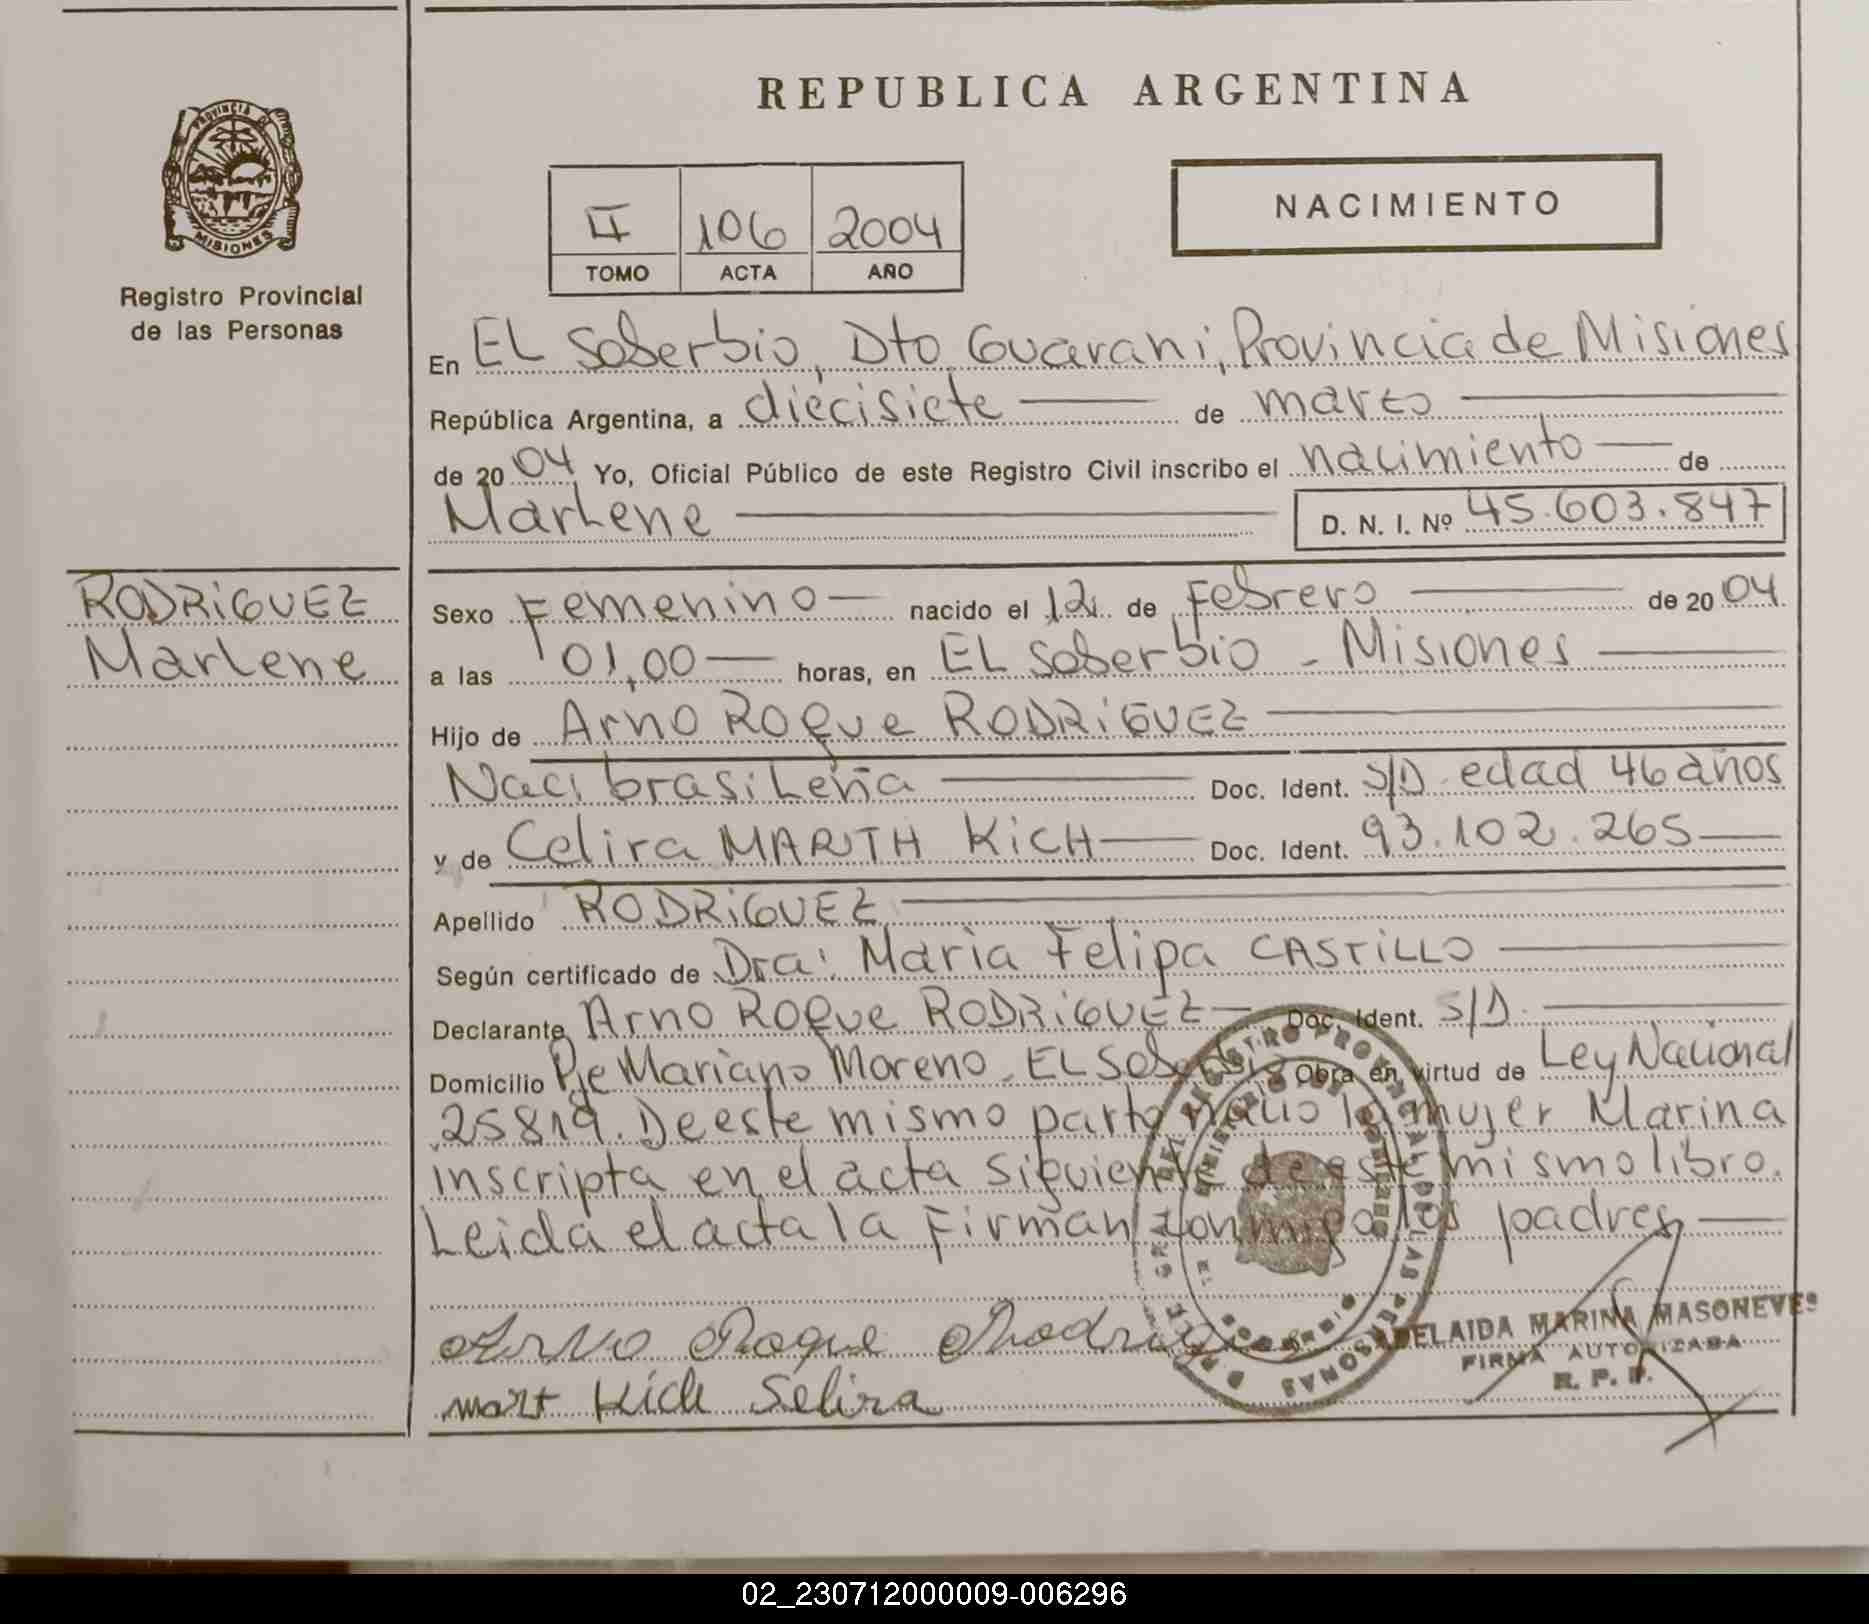 REPUBLICA ARGENTINA
PROVINCIA DE
MISIONES
Registro Provincial
de las Personas
II 106 2004
TOMO ACTA AÑO
NACIMIENTO
En EL Soberbio, Dto Guarani, Provincia de Misiones
República Argentina, a diecisiete de marzo
de 2004 Yo, Oficial Público de este Registro Civil inscribo el nacimiento de
Marlene D. N. I. Nº 45.603.847
RODRIGUEZ
Marlene
Sexo Femenino nacido el 12 de Febrero de 2004
a las 01,00 horas, en EL Soberbio - Misiones
Hijo de Arno Roque RODRIGUEZ
Naci brasileña Doc. Ident. S/D edad 46 años
y de Celira MARTH KICH Doc. Ident. 93.102.265
Apellido RODRIGUEZ
Según certificado de Dra: Maria Felipa CASTILLO
Declarante Arno Roque RODRIGUEZ Doc. Ident. S/D.
Domicilio Pje Mariano Moreno - EL Soberbio Obra en virtud de Ley Nacional
25819. De este mismo parto nacio la mujer Marina
inscripta en el acta siguiente de este mismo libro.
Leida el acta la Firman conmigo los padres
Arno Roque Rodrigues
mart Kich Selira
ADELAIDA MARINA MASONEVES
FIRMA AUTORIZADA
R. P. P.
02_230712000009-006296